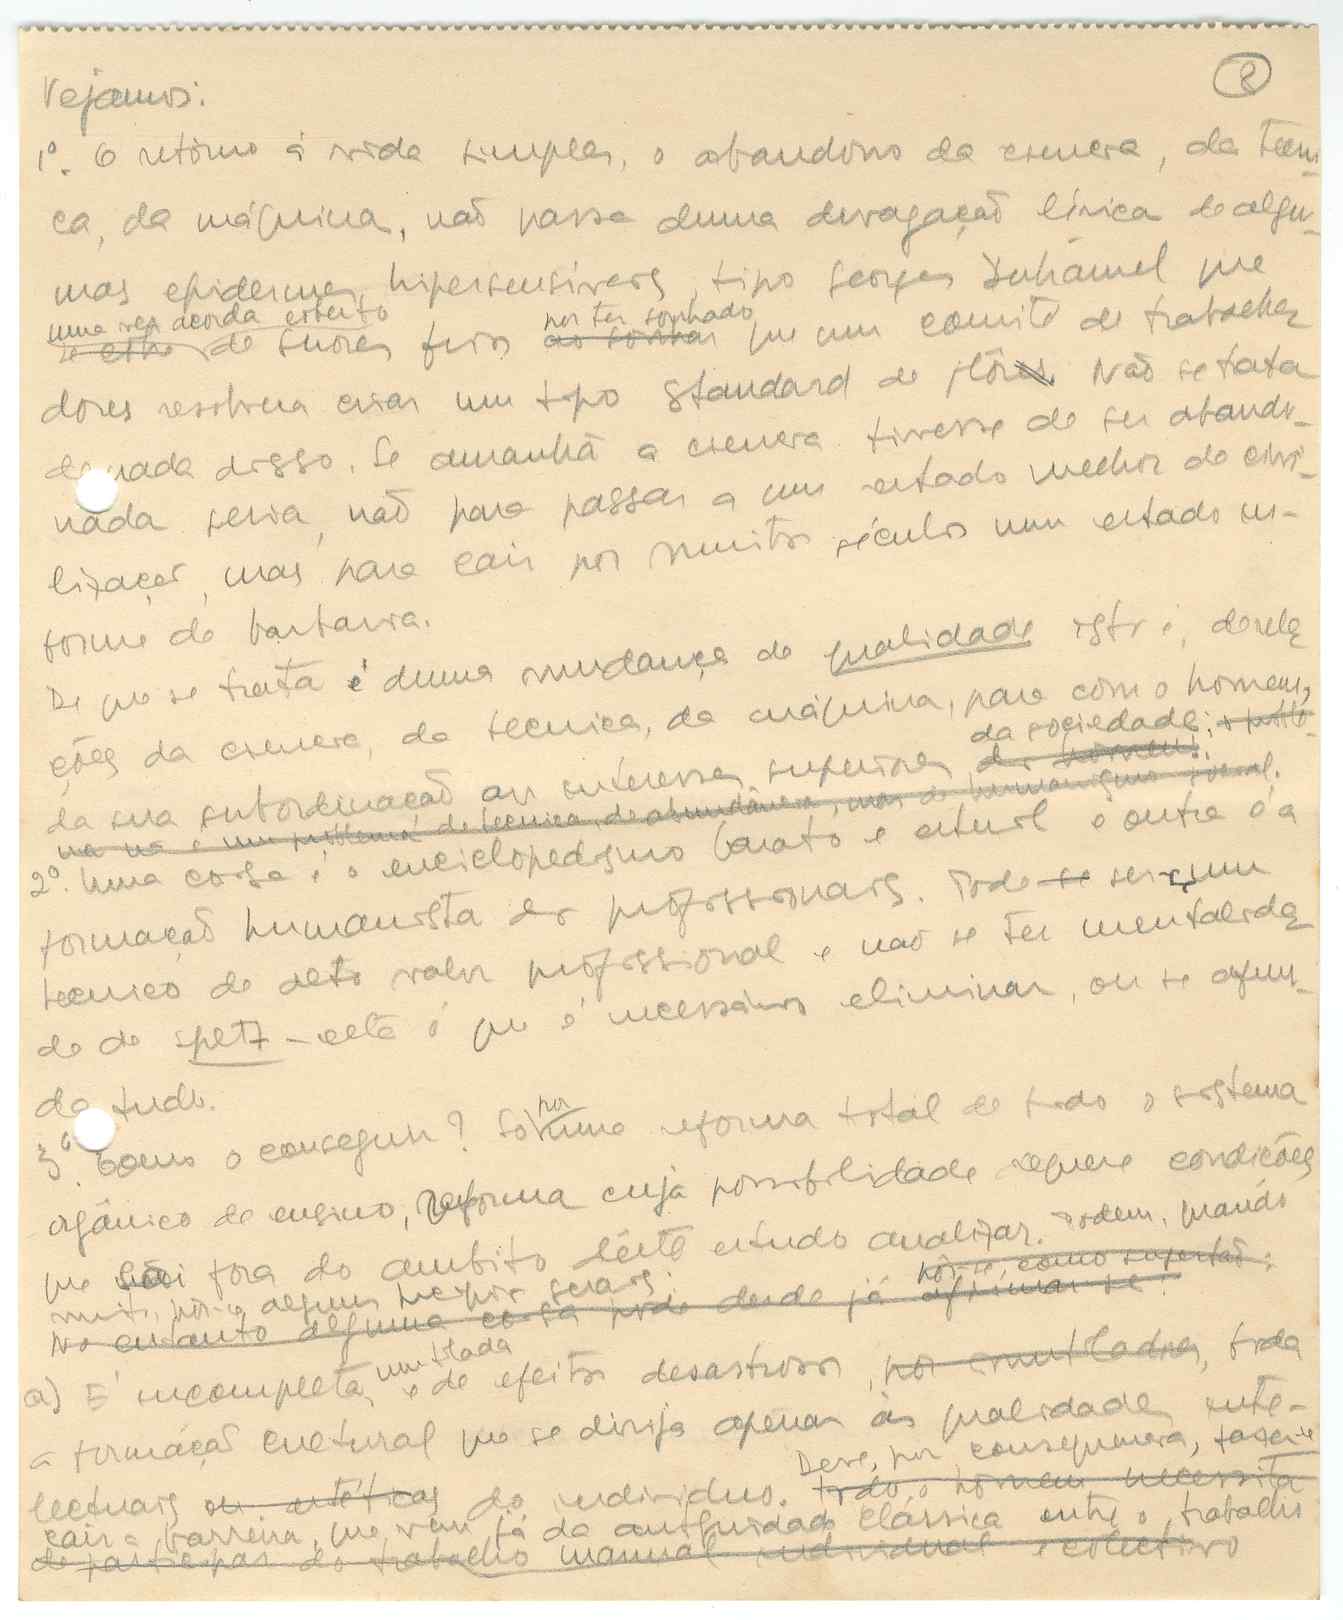 8
Vejamos:
1º. O retôrno à vida simples, o abandôno da ciencia, da técni-
ca, da máquina, não passa duma divagação lírica de algu-
mas epidermes hipersensíveis, tipo Georges Duhamel que
uma vez acorda coberto por ter sonhado
de suores frios ao sonhar que um comité de trabalha
dores resolvera criar um tipo Standard de flôres. Não se trata
de nada disso. Se amanhã a ciencia tivesse de ser abando-
nada seria, não para passar a um estado melhor de civi-
lização, mas para cair por muitos séculos num estado in-
forme de barbaria.
De que se trata é duma mudança de qualidade isto é, de rela
ções da ciencia, da técnica, da máquina, para com o homem,
da sociedade;
da sua subordinação aos interesses superiores do homem.
um problema de técnica, de abundância, mas de humanismo social.
2º. Uma coisa é o enciclopedismo barato e inutil e outra é a
formação humanista dos profissionais. Pode se ser um
técnico de alto valor profissional e não se ter mentalida
de de spetz – esta é que é necessário eliminar, ou se afun-
da tudo.
3º. Como o conseguir? Só por uma reforma total de todo o sistema
orgânico de ensino, reforma cuja possibilidade requere condições
que fora do ambito dêste estudo analizar. Podem, quando
muito, pôr-se alguns principios gerais: pôr-se, como sugestão:
No entanto alguma coisa pode desde já afirmar-se:
mutilada
a) É incompleta, e de efeitos desastrosos, por mutiladora, toda
a formação cultural que se dirija apenas às qualidades inte-
Deve, por consequencia, fazer-se
lectuais ou estéticas do individuo. todo o homem necessita
cair a barreira, que vem já da antiguidade clássica entre o trabalho
de participar do trabalho manual individual e colectivo